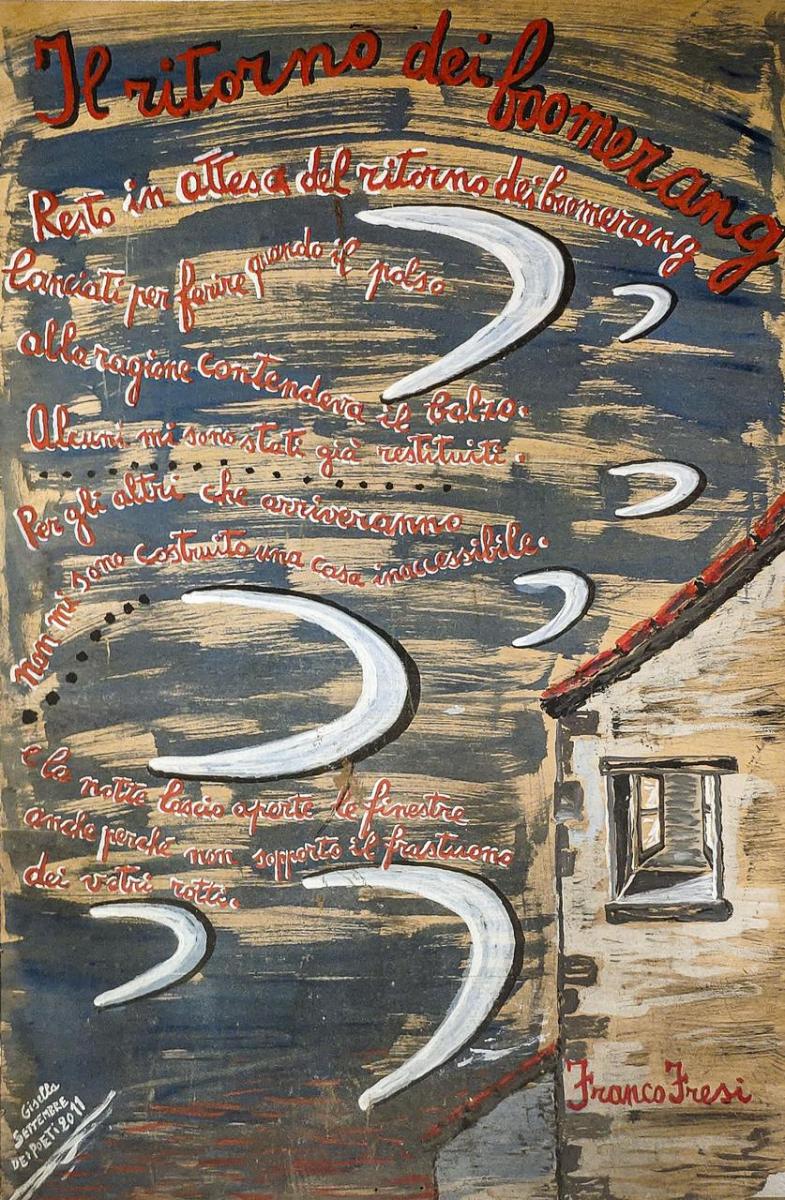 Il ritorno dei boomerang
Resto in attesa del ritorno dei boomerang
lanciati per ferire quando il polso
alla ragione contendeva il balzo.
Alcuni mi sono stati già restituiti.
Per gli altri che arriveranno
non mi sono costruito una casa inaccessibile.
e la notte lascio aperte le finestre
anche perché non sopporto il frastuono
dei vetri rotti.
Franco Fresi
Gisella
SETTEMBRE
DEI POETI 2011